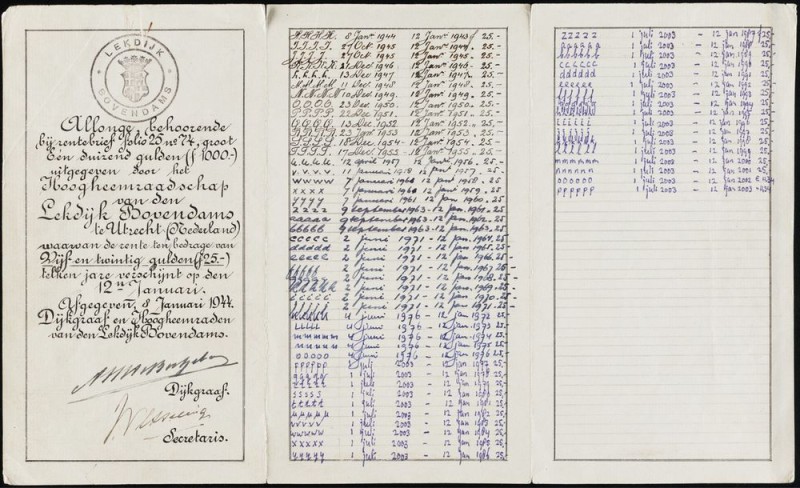 LEKDIJK
BOVENDAMS
Allonge, behoorende
bij rentebrief folio 25 no 74, groot
Een duizend gulden (f 1000.-)
uitgegeven door het
Hoogheemraadschap
van den
Lekdijk Bovendams
te Utrecht (Nederland)
waarvan de rente ten bedrage van
Vijf en twintig gulden (f 25.-)
telken jare verschijnt op den
12en Januari.
Afgegeven, 8 Januari 1944.
Dijkgraaf en Hoogheemraden
van den Lekdijk Bovendams.
Dijkgraaf.
Secretaris.
8 Jan. 1944 12 Jan. 1943 25,-
27 Oct. 1945 12 Jan. 1944 25,-
27 Oct. 1945 12 Jan. 1945 25,-
Dec. 1946 12 Jan. 1946 25,-
13 Dec. 1947 12 Jan. 1947 25,-
11 Dec. 1948 12 Jan. 1948 25,-
10 Dec. 1949 12 Jan. 1949 25,-
OOOO 23 Dec. 1950 12 Jan. 1950 25,-
PPPP 22 Dec. 1951 12 Jan. 1951 25,-
13 Dec. 1952 12 Jan. 1952 25,-
1953 12 Jan. 1953 25,-
18 Dec. 1954 12 Jan. 1954 25,-
12 Jan. 1955 25,-
u.u.u.u. 12 april 1957 12 Jan. 1956 25,-
v.v.v.v. 11 januari 12 jan. 1957 25,-
wwww 7 januari 1960 12 jan. 1958 25,-
xxxx 7 januari 1960 12 jan. 1959 25,-
yyyy 7 januari 1961 12 jan. 1960 25,-
zzzz 9 september 1963 - 12 jan. 1961 25,-
aaaaa 9 september 1963 - 12 jan. 1962 25,-
bbbbb 9 september 1963 - 12 jan. 1963 25,-
ccccc 2 juni 1971 - 12 jan. 1964 25,-
ddddd 2 juni 1971 - 12 jan. 1965 25,-
eeeee 2 juni 1971 - 12 jan. 1966 25,-
2 juni 1971 - 12 jan. 1967 25,-
2 juni 1971 - 12 jan. 1968 25,-
2 juni 1971 - 12 jan. 1969 25,-
2 juni 1971 - 12 jan. 1970 25,-
2 juni 1971 - 12 jan. 1971 25,-
4 juni 1976 - 12 jan 1972 25,-
lllll 4 juni 1976 - 12 jan 1973 25,-
mmmmm 4 juni 1976 - 12 jan 1974 25,-
nnnnn 4 juni 1976 - 12 jan 1975 25,-
ooooo 4 juni 1976 - 12 jan 1976 25,-
ppppp 1 juli 2003 - 12 jan 1977 25,-
qqqqq 1 juli 2003 - 12 jan 1978 25,-
1 juli 2003 - 12 jan 1979 25,-
sssss 1 juli 2003 - 12 jan 1980 25,-
ttttt 1 juli 2003 - 12 jan 1981 25,-
uuuuu 1 juli 2003 - 12 jan 1982 25,-
vvvvv 1 juli 2003 - 12 jan 1983 25,-
wwwww 1 juli 2003 - 12 jan 1984 25,-
xxxxx 1 juli 2003 - 12 jan 1985 25,-
yyyyy 1 juli 2003 - 12 jan 1986 25,-
zzzzz 1 juli 2003 - 12 jan 1987 25,-
aaaaaa 1 juli 2003 - 12 jan 1988 25,-
bbbbbb 1 juli 2003 - 12 jan 1989 25,-
cccccc 1 juli 2003 - 12 jan 1990 25,-
dddddd 1 juli 2003 - 12 jan 1991 25,-
eeeeee 1 juli 2003 - 12 jan 1992 25,-
ffffff 1 juli 2003 - 12 jan 1993 25,-
1 juli 2003 - 12 jan 25,-
1 juli 2003 - 12 jan 25,-
1 juli 2003 - 12 jan 25,-
1 juli 2003 - 12 jan 25,-
1 juli 2003 - 12 jan 25,-
1 juli 2003 - 12 jan 25,-
mmmmmm 1 juli 2003 - 12 jan 2000 25,-
nnnnnn 1 juli 2003 - 12 jan 2001 25,-
oooooo 1 juli 2003 - 12 jan 2002
pppppp 1 juli 2003 - 12 jan 2003